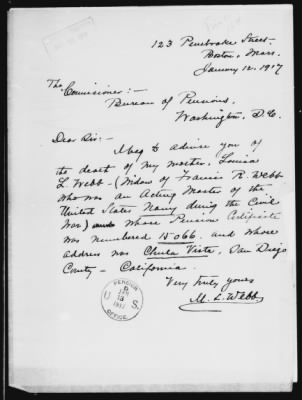 123 Pembroke Street.
Boston, Mass.
January 12. 1917
The
Commissioner:-
Bureau of Pensions,
Washington, D.C.
Dear Sir:-
I beg to advise you of
the death of my mother, Louisa
L. Webb - (Widow of Francis R. Webb
who was an Acting Master of the
United States Navy during the Civil
War) whose Pension Certificate
was numbered 15066. and whose
address was Chula Vista, San Diego
County - California.
Very truly yours
M. L. Webb
PENSION
U. S.
OFFICE